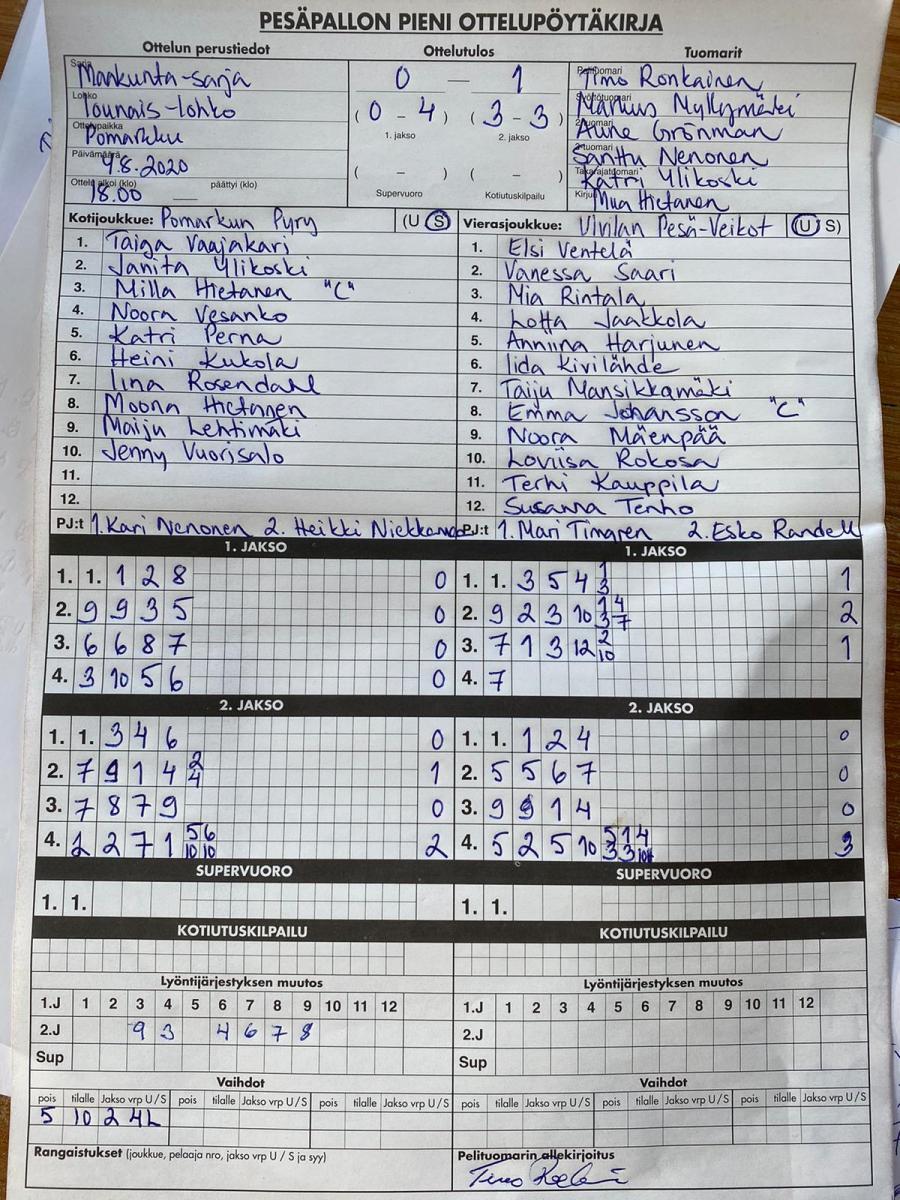 PESÄPALLON PIENI OTTELUPÖYTÄKIRJA
Ottelun perustiedot Ottelutulos Tuomarit
Sarja Maakunta-sarja
Lohko Lounais-lohko
Ottelupaikka Pomarkku
Päivämäärä 9.8.2020
Ottelu alkoi (klo) 18.00 päättyi (klo)
0 — 1
(0 - 4) (3 - 3)
1. jakso 2. jakso
( - ) ( - )
Supervuoro Kotiutuskilpailu
Pelituomari Timo Ronkainen
Syöttötuomari Markus Myllymäki
2-tuomari Aune Grönman
3-tuomari Santtu Nenonen
Takarajatuomari Katri Ylikoski
Kirjuri Miia Hietanen
Kotijoukkue: Pomarkun Pyry (U S)
1. Taiga Vaajakari
2. Janita Ylikoski
3. Milla Hietanen "C"
4. Noora Vesanko
5. Katri Perna
6. Heini Kukola
7. Iina Rosendahl
8. Moona Hietanen
9. Maiju Lehtimäki
10. Jenny Vuorisalo
11.
12.
PJ:t 1. Kari Nenonen 2. Heikki
Vierasjoukkue: Ulvilan Pesä-Veikot (U S)
1. Elsi Ventelä
2. Vanessa Saari
3. Mia Rintala
4. Lotta Jaakkola
5. Anniina Harjunen
6. Iida Kivilähde
7. Taiju Mansikkamäki
8. Emma Johansson "C"
9. Noora Mäenpää
10. Loviisa Rokosa
11. Terhi Kauppila
12. Susanna Tenho
PJ:t 1. Mari Timgren 2. Esko Randell
1. JAKSO
1. 1. 1 2 8 0
2. 9 9 3 5 0
3. 6 6 8 7 0
4. 3 10 5 6 0
1. JAKSO
1. 1. 3 5 4 1 3 1
2. 9 2 3 10 1 4 3 7 2
3. 7 1 3 12 2 10 1
4. 7
2. JAKSO
1. 1. 3 4 6 0
2. 7 9 1 4 2 4 1
3. 7 8 7 9 0
4. 2 2 7 1 5 6 10 10 2
2. JAKSO
1. 1. 1 2 4 0
2. 5 5 6 7 0
3. 9 9 1 4 0
4. 5 2 5 10 5 1 4 3 3 3
SUPERVUORO SUPERVUORO
1. 1. 1. 1.
KOTIUTUSKILPAILU KOTIUTUSKILPAILU
Lyöntijärjestyksen muutos Lyöntijärjestyksen muutos
1.J 1 2 3 4 5 6 7 8 9 10 11 12 1.J 1 2 3 4 5 6 7 8 9 10 11 12
2.J 9 3 4 6 7 8 2.J
Sup Sup
Vaihdot Vaihdot
pois tilalle Jakso vrp U/S pois tilalle Jakso vrp U/S pois tilalle Jakso vrp U/S pois tilalle Jakso vrp U/S pois tilalle Jakso vrp U/S pois tilalle Jakso vrp U/S
5 10 2 4L
Rangaistukset (joukkue, pelaaja nro, jakso vrp U / S ja syy) Pelituomarin allekirjoitus